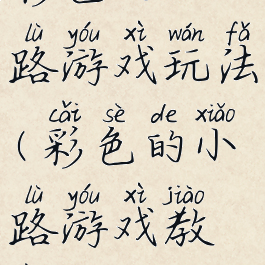 lù yóu xì wán fǎ
路游戏玩法
cǎi sè de xiǎo
(彩色的小
lù yóu xì jiào
路游戏教